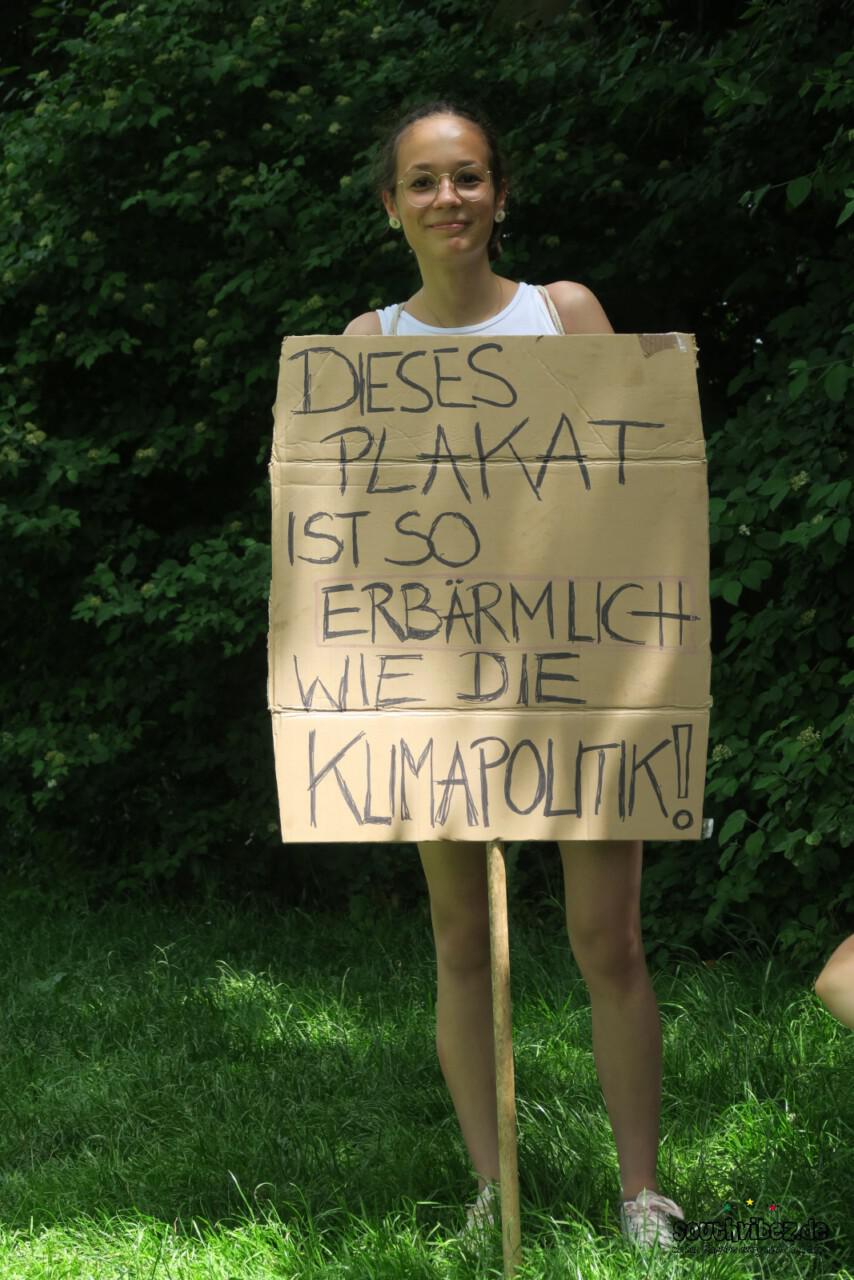 DIESES
PLAKAT
IST SO
ERBÄRMLICH
WIE DIE
KLIMAPOLITIK!
southvibez.de